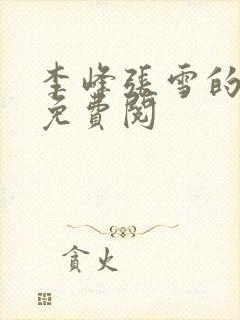 李峰張雪的
免費閱
貪火